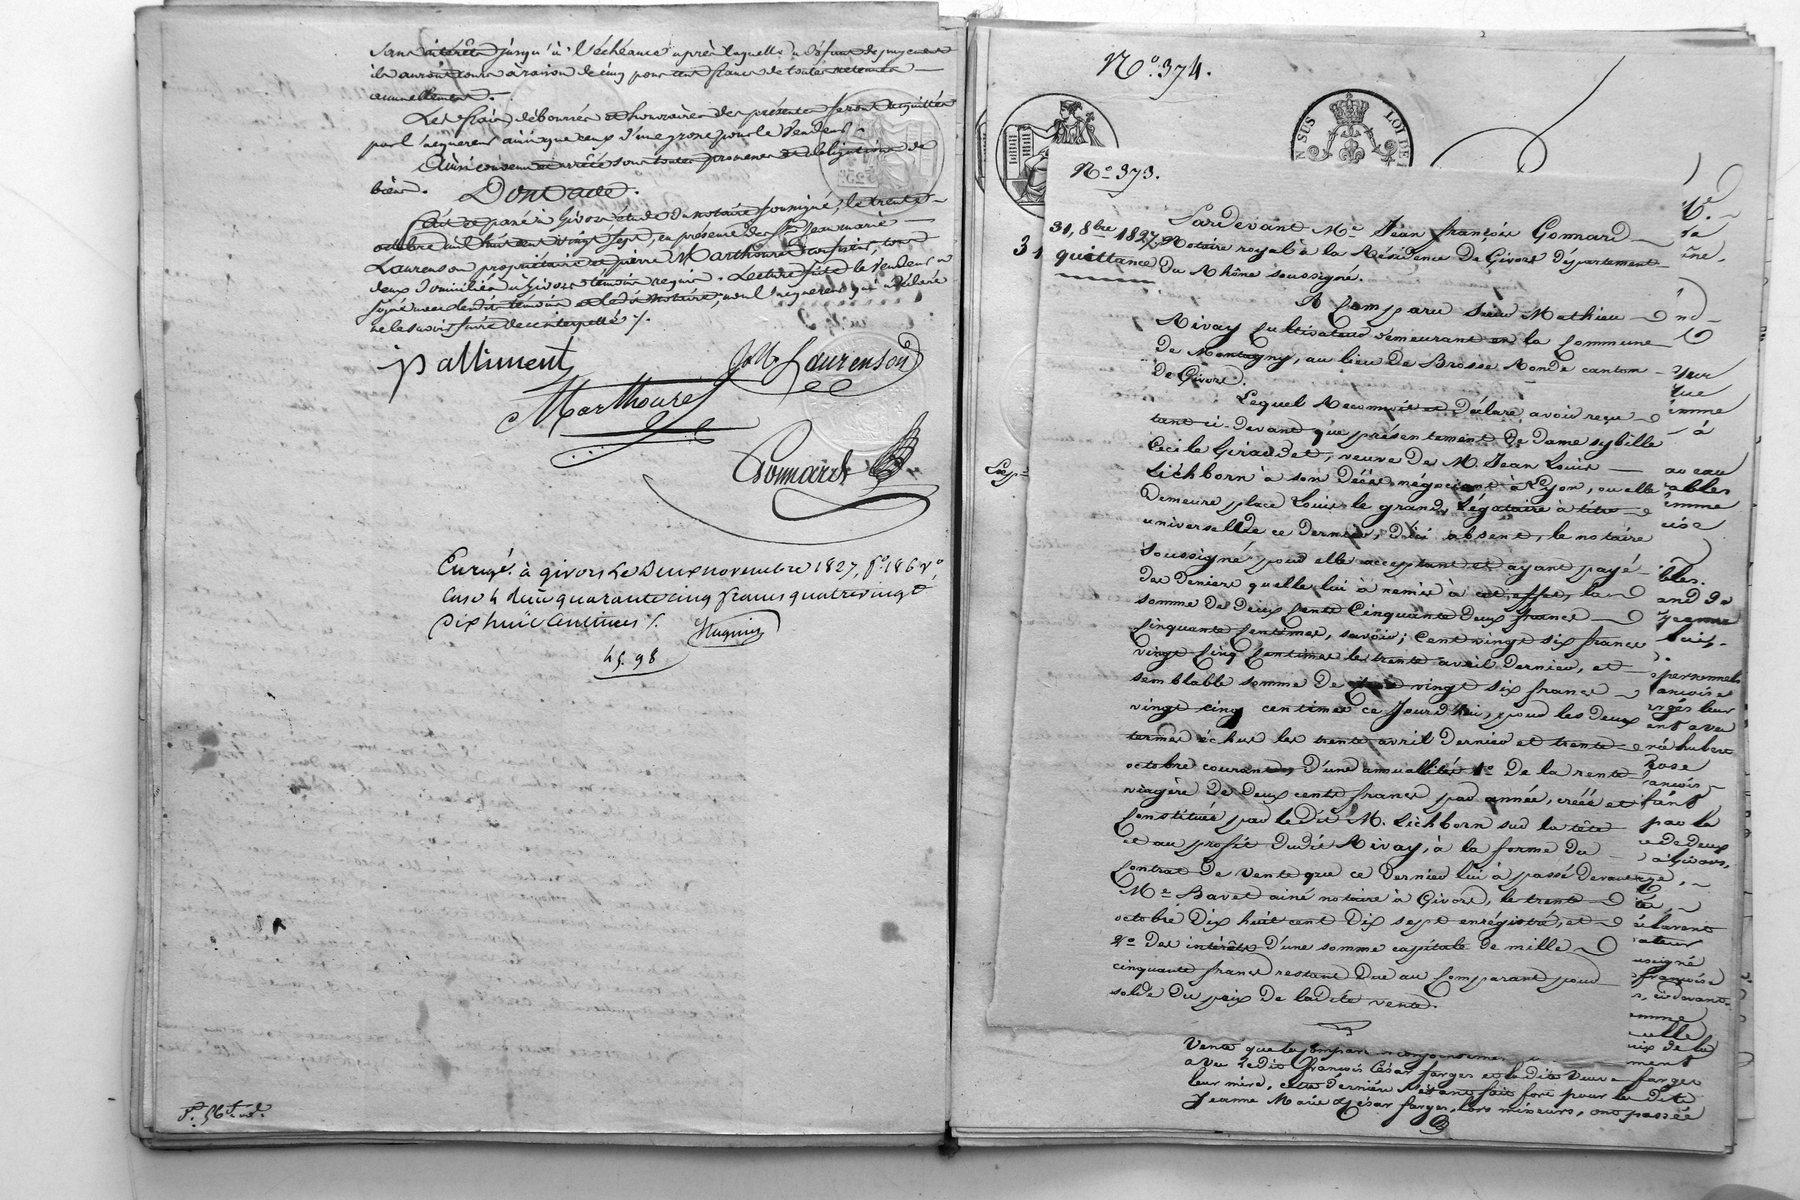 sans intérêts jusqu'à l'échéance après laquelle à défaut de payement
ils auront cours à raison de cinq pour cent francs de toutes retenues
annuellement.
Les frais, déboursés et honoraires des présentes seront acquittés
par l'acquéreur ainsi que ceux d'une grosse pour le vendeur.
Ainsi convenu et arrêté sous toutes promesses et obligations de
biens. Dont acte.
Fait et passé à Givors étude du notaire soussigné, le trente
octobre mil huit cent vingt sept, en présence des Srs Jean marie
Laurenson propriétaire et pierre Marthouret tous
deux domiciliés à Givors témoins requis. Lecture faite le vendeur a
signé avec lesdits témoins et ledit notaire, non l'acquéreur qui a déclaré
ne le savoir faire de ce interpellé /.
p allimant
JM Laurenson
Marthouret
Gonnard
Enregé. à givors le deux novembre 1827, fo. 186 vo,
case 4 reçu quarante cinq francs quatre vingt
dix huit centimes /.
Hugnin
45. 98
No. 374.
SUS
LOI DE
No 373.
31, 8bre 1827
quittance
31
Pardevant Me Jean françois Gonnard
Notaire royal à la Résidence de Givors département
du Rhône soussigné.
A Comparu Sieur Mathieu
Rivay cultivateur demeurant en la commune
de Montagny, au lieu de Brosse Ronde canton
de Givors.
Lequel Reconnoit et déclare avoir reçu
tant ci-devant que présentement de dame sybille
Cécile Giraudet, veuve de M. Jean Louis
Lichborn à son décès négociant à Lyon, ou elle
demeure place Louis le grand, Légataire à titre
universelle de ce dernier, d'ici absent, le notaire
soussigné pour elle acceptant et ayant payé
des deniers quelle lui à remis à cet effet, la
somme de deux cents Cinquante deux francs
cinquante centimes, savoir; Cent vingt six francs
vingt cinq centimes le trente avril dernier, et
semblable somme de vingt six francs
vingt cinq centimes ce Jourd'hui, pour les deux
termes échus les trente avril dernier et trente
octobre courant, d'une annuallités 1o de la rente
viagère de deux cents francs par année, créée et
constituée par ledit M. Lichborn sur la tête
et au profit dudit Rivay, à la forme du
contrat de vente que ce dernier lui à passé devant
Me Bavet ainé notaire à Givors, le trente
octobre dix huit cent dix sept enrégistré, et
2o des intérêts d'une somme capitale de mille
cinquante francs restant due au Comparant pour
solde du prix de ladite vente.
vente que les Comparans conjointement
avec ledit François César farges et ladite veuve farges
leur mère, cette dernière s'étant fait fort pour ladite
Jeanne Marie & César farges, lors mineurs, ont passée